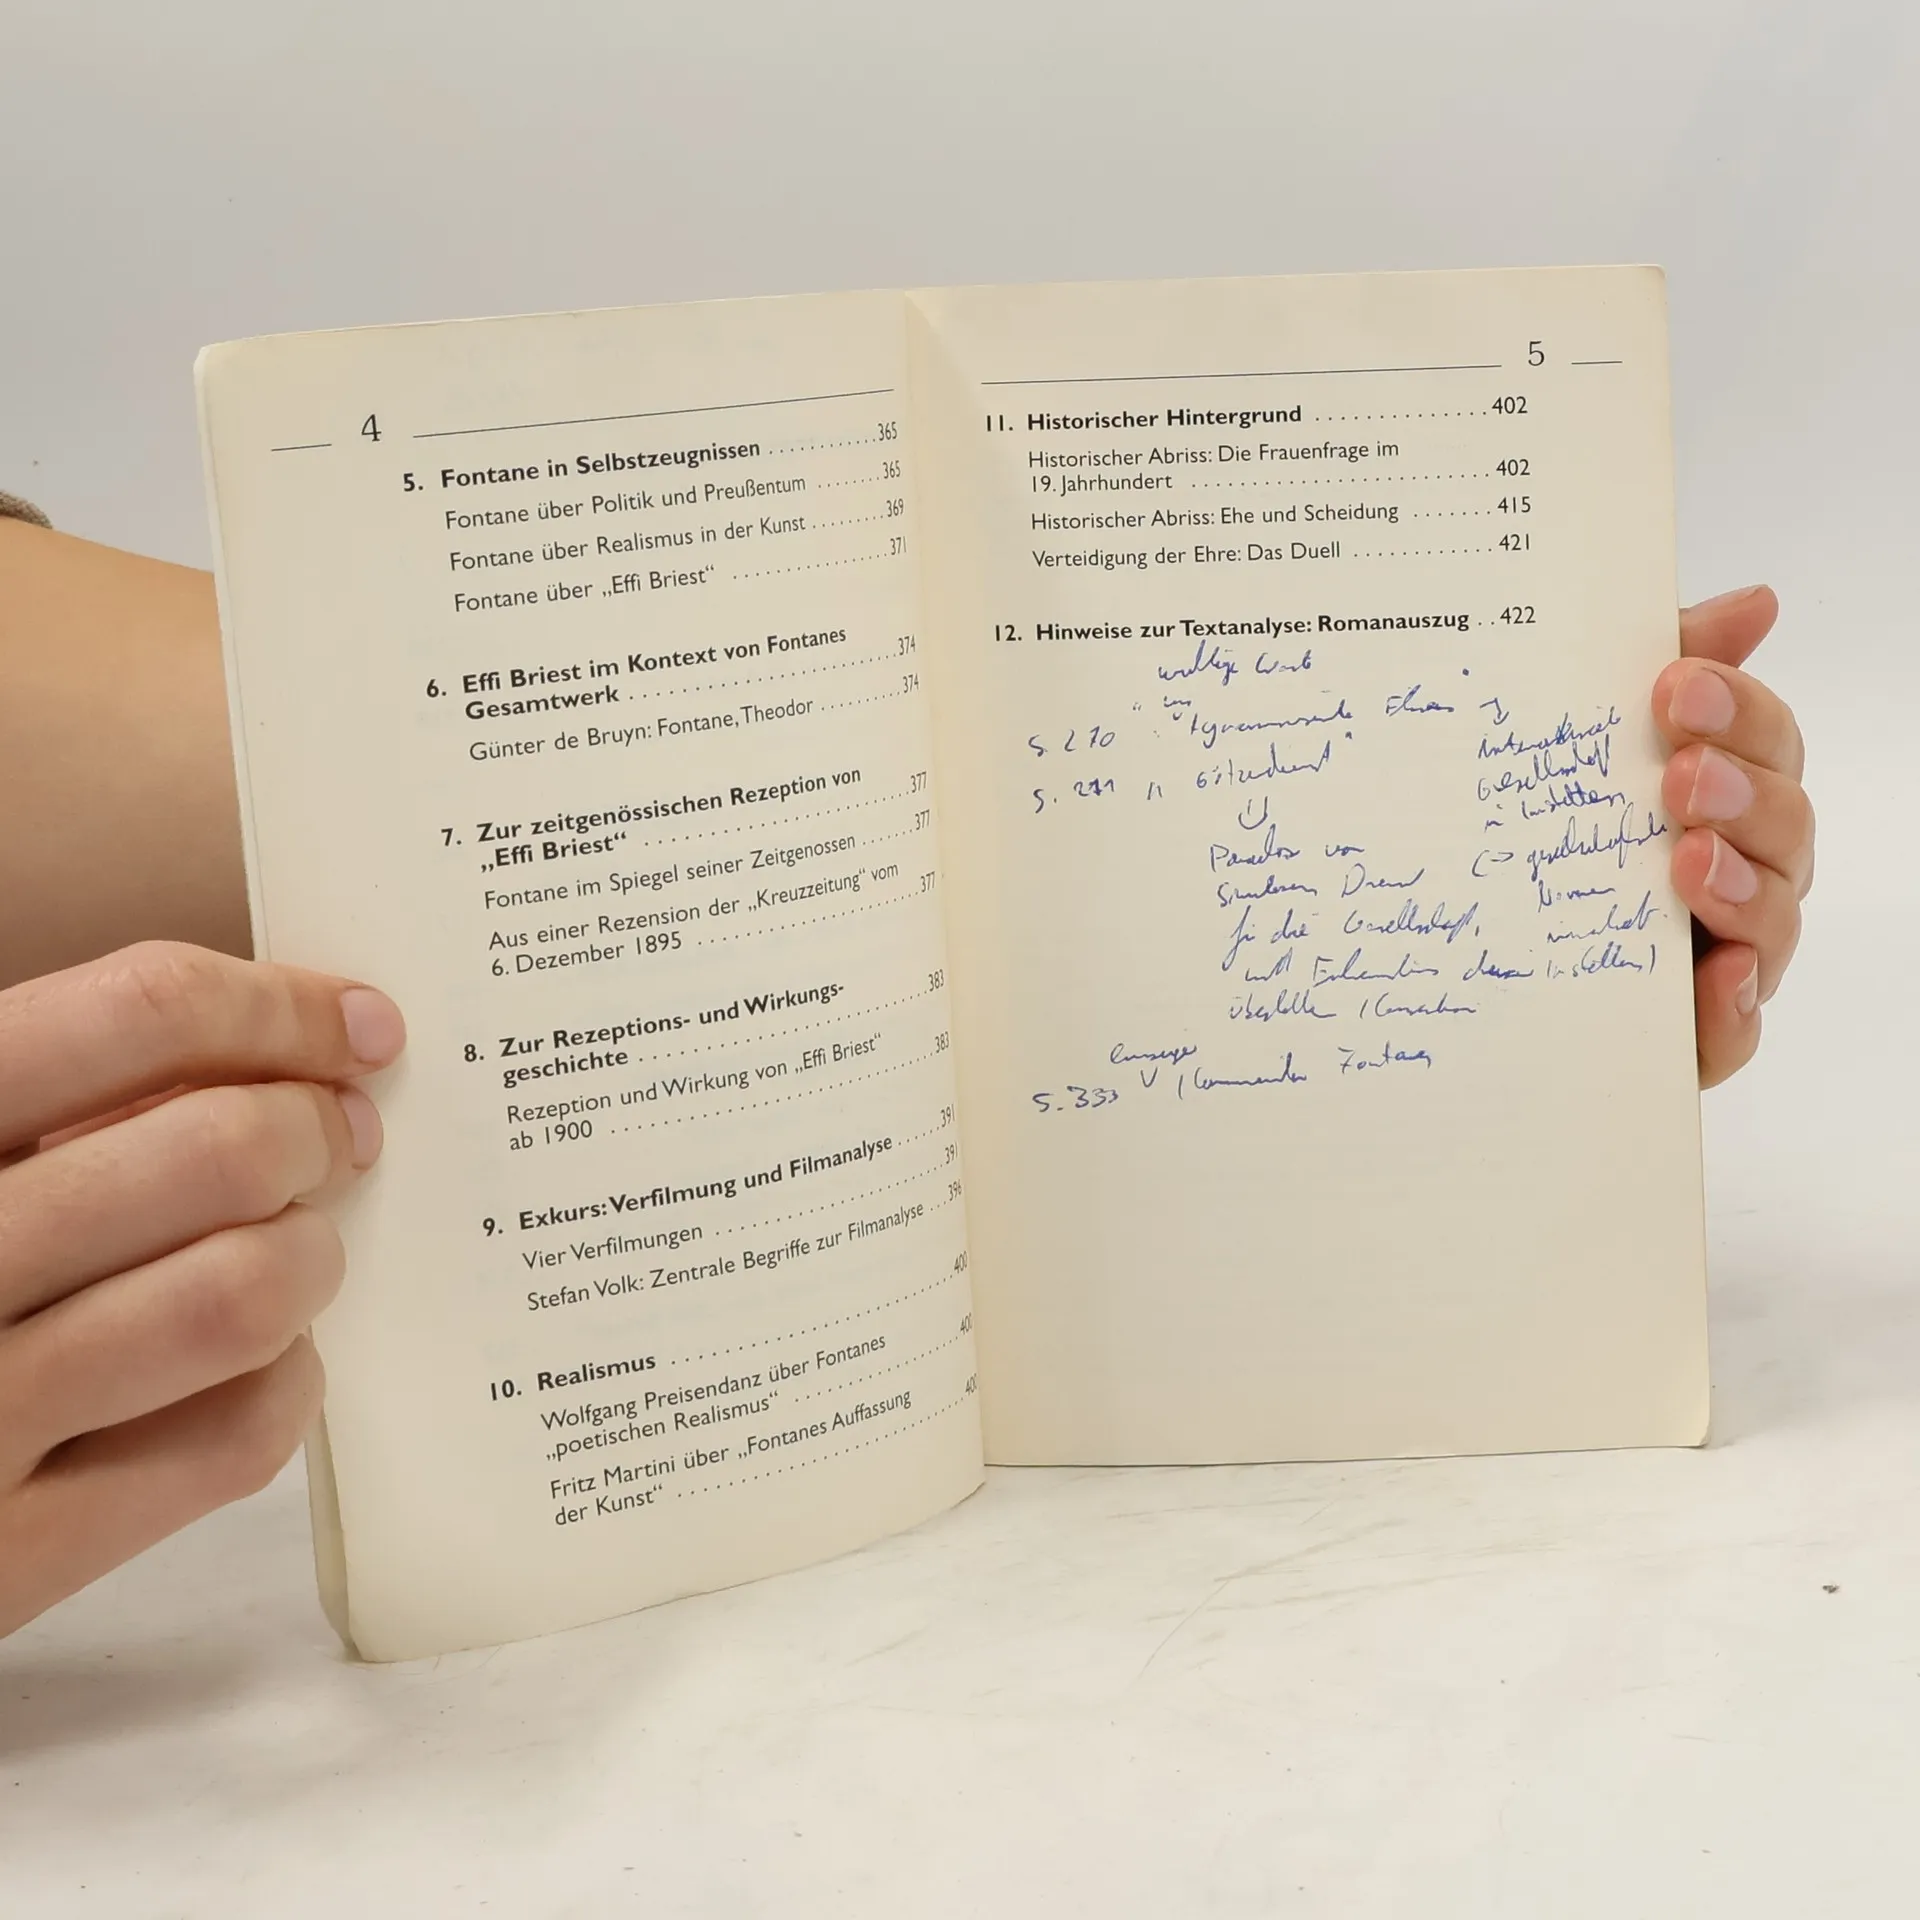 4
5. Fontane in Selbstzeugnissen ........... 365
Fontane über Politik und Preußentum ........ 365
Fontane über Realismus in der Kunst ......... 369
Fontane über „Effi Briest“ ............... 371
6. Effi Briest im Kontext von Fontanes
Gesamtwerk ......................... 374
Günter de Bruyn: Fontane, Theodor .......... 374
7. Zur zeitgenössischen Rezeption von
„Effi Briest“ ......................... 377
Fontane im Spiegel seiner Zeitgenossen ....... 377
Aus einer Rezension der „Kreuzzeitung“ vom
6. Dezember 1895 ..................... 377
8. Zur Rezeptions- und Wirkungs-
geschichte ......................... 383
Rezeption und Wirkung von „Effi Briest“
ab 1900 ............................ 383
9. Exkurs: Verfilmung und Filmanalyse ...... 391
Vier Verfilmungen ..................... 391
Stefan Volk: Zentrale Begriffe zur Filmanalyse ... 396
10. Realismus ......................... 400
Wolfgang Preisendanz über Fontanes
„poetischen Realismus“ ................. 400
Fritz Martini über „Fontanes Auffassung
der Kunst“ ......................... 400
5
11. Historischer Hintergrund .............. 402
Historischer Abriss: Die Frauenfrage im
19. Jahrhundert ........................ 402
Historischer Abriss: Ehe und Scheidung ....... 415
Verteidigung der Ehre: Das Duell ............ 421
12. Hinweise zur Textanalyse: Romanauszug .. 422
S. 270
S. 271 " Götzendienst"
Gesellschaft
in Innstetten
Paradox von
gesellschaftliche
Normen
für die Gesellschaft,
Innstetten)
S. 333 Fontanes